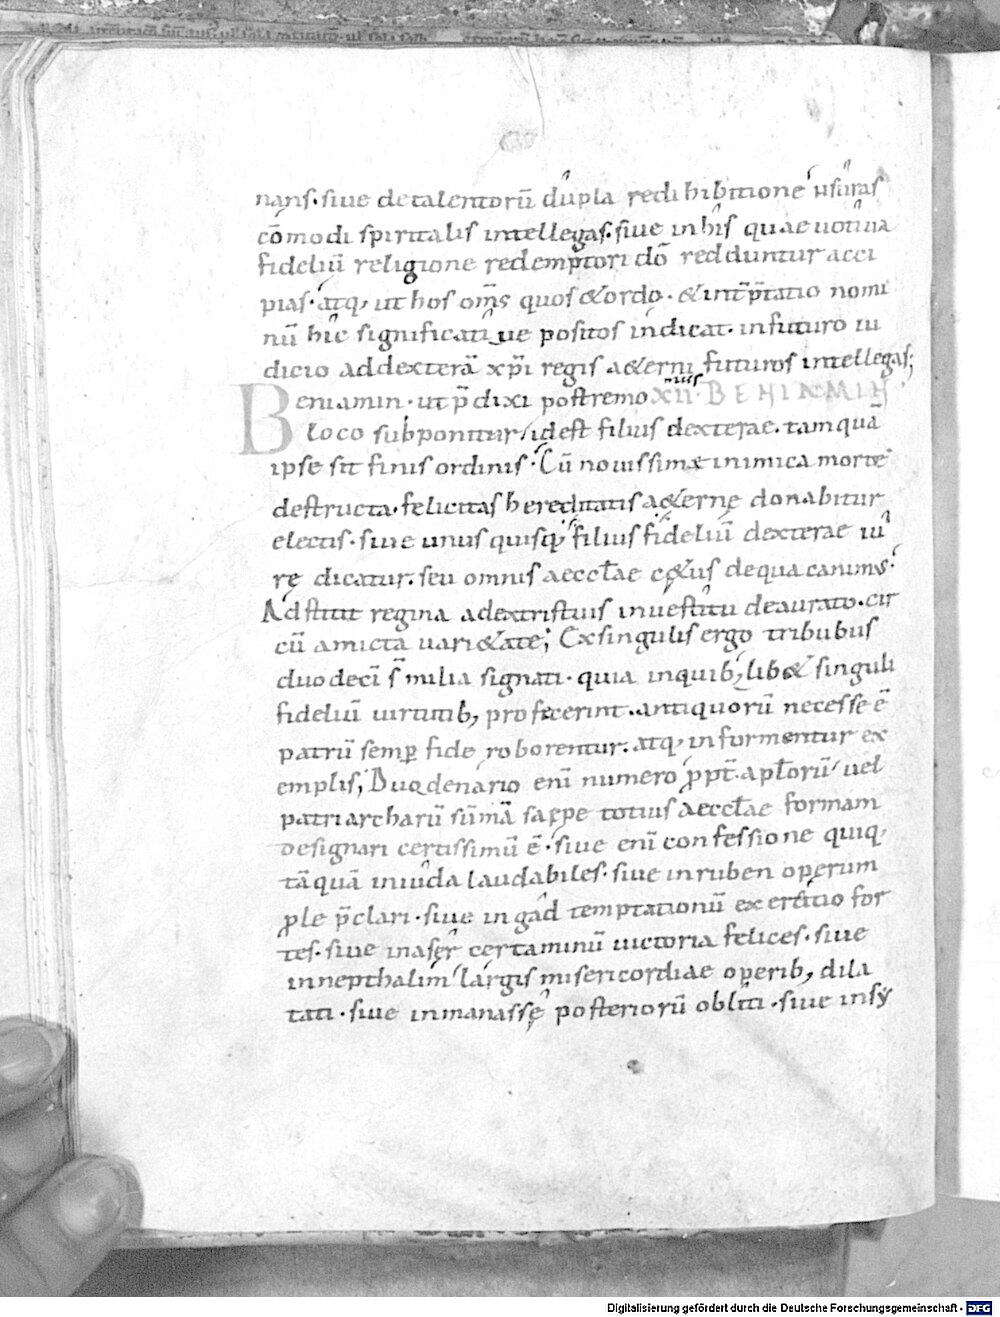 nans. siue detalentorū dupla redihibitione usuras
cōmodi spiritalis intellegas. siue inhis quae uotiua
fideliū religione redemptori dō redduntur acci
pias. atq, ut hos om̄s quos & ordo. & int̄p̄tatio nomi
nū hic significatiue positos indicat. infuturo iu
dicio addexterā xp̄i regis aeterni futuros intellegas;
Beniamin. ut p̄dixi postremo XII. BENIAMIN
loco subponitur, idest filius dexterae. tamquā
ipse sit finis ordinis. Cū nouissima inimica morte
destructa. felicitas hereditatis aeternę donabitur
electis. siue unus quisq; filius fideliū dexterae iu
rę dicatur. seu omnis aeccłae cętus dequa canimus.
Adstitit regina adextristuis inuestitu deaurato. cir
cū amicta uari&ate; Exsingulis ergo tribubus
duodecī milia signati. quia inquib, lib& singuli
fideliū uirtutib, profecerint. antiquorū necesse ē
patrū semp fide roborentur. atq, informentur ex
emplis; Duodenario enī numero ppt. aptorū uel
patriarcharū sūmā saepe totius aeccłae formam
designari certissimū ē. siue enī confessione quiq,
tāquā iniuda laudabiles. siue inruben operum
ple p̄clari. siue in gad temptationū exercitio for
tes. siue inaser certaminū uictoria felices. siue
innepthalim largis misericordiae operib, dila
tati. siue inmanasse posteriorū obliti. siue insy
Digitalisierung gefördert durch die Deutsche Forschungsgemeinschaft - DFG